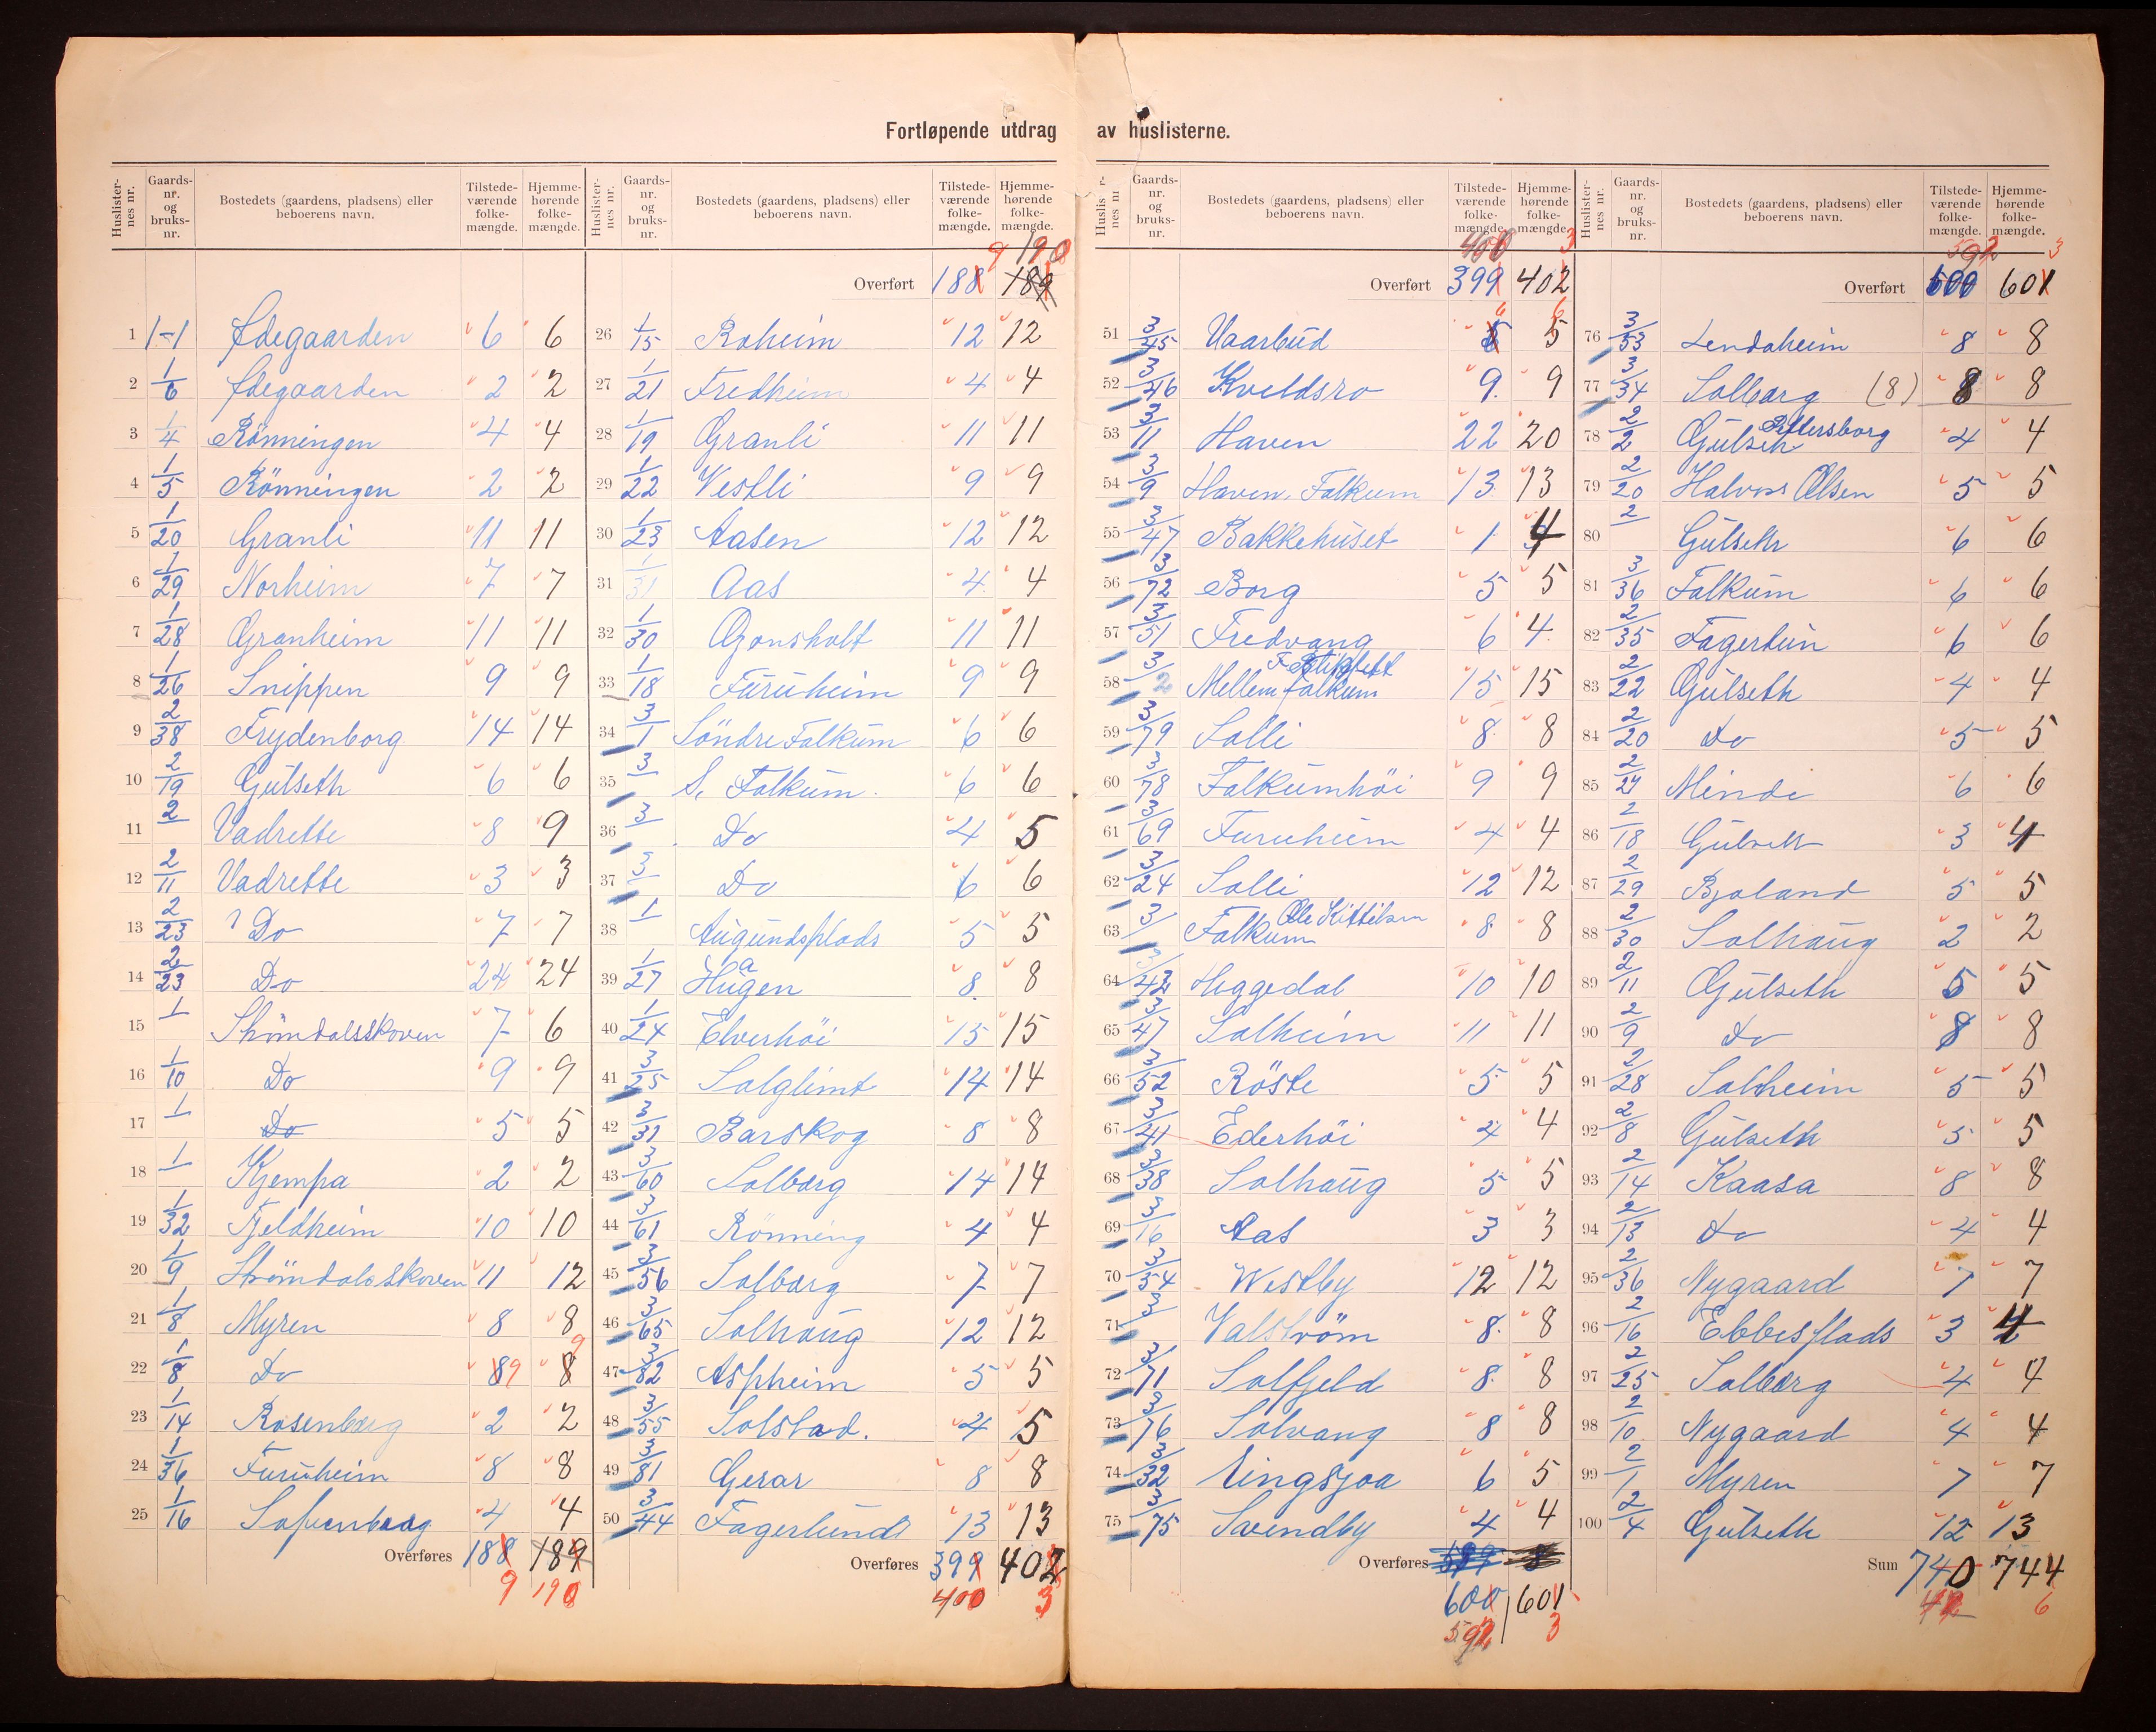 Fortløpende utdrag av huslisterne.
Huslister-nes nr. Gaards-nr. og bruks-nr. Bostedets (gaardens, pladsens) eller beboerens navn. Tilstede-værende folke-mængde. Hjemme-hørende folke-mængde.
1 1-1 Ødegaarden 6 6
2 1/6 Ødegaarden 2 2
3 1/4 Rönningen 4 4
4 1/5 Rönningen 2 2
5 1/20 Granli 11 11
6 1/29 Norheim 7 7
7 1/28 Granheim 11 11
8 1/26 Snippen 9 9
9 2/38 Frydenborg 14 14
10 2/19 Gulseth 6 6
11 2 Vadrette 8 9
12 2/11 Vadrette 3 3
13 2/23 Do 7 7
14 2/23 Do 24 24
15 1 Strömdalsskoven 7 6
16 1/10 Do 9 9
17 1 Do 5 5
18 1 Kjempa 2 2
19 1/32 Fjeldheim 10 10
20 1/9 Strömdalsskoven 11 12
21 1/8 Myren 8 8
22 1/8 Do 8 9 8 9
23 1/14 Rosenberg 2 2
24 1/36 Furuheim 8 8
25 1/16 4 4
Overføres 188 189
9 190
Huslister-nes nr. Gaards-nr. og bruks-nr. Bostedets (gaardens, pladsens) eller beboerens navn. Tilstede-værende folke-mængde. Hjemme-hørende folke-mængde.
9 190
Overført 188 189
26 1/15 Roheim 12 12
27 1/21 Fredheim 4 4
28 1/19 Granli 11 11
29 1/22 Vestli 9 9
30 1/23 Aasen 12 12
31 1/31 Aas 4 4
32 1/30 Gonsholt 11 11
33 1/18 Furuheim 9 9
34 3/1 Söndre Falkum 6 6
35 3 S. Falkum 6 6
36 3 Do 4 5
37 3 Do 6 6
38 1 Augundsplads 5 5
39 1/27 Haugen 8 8
40 1/24 Elverhöi 15 15
41 3/25 Solglimt 14 14
42 3/31 Barskog 8 8
43 3/60 Solberg 14 14
44 3/61 Rönning 4 4
45 3/56 Solberg 7 7
46 3/65 Solhaug 12 12
47 3/82 Aspheim 5 5
48 3/55 Solstad. 4 5
49 3/81 Gerar 8 8
50 3/44 Fagerlund 13 13
Overføres 399 402
400 3
Gaards-nr. og bruks-nr. Bostedets (gaardens, pladsens) eller beboerens navn. Tilstede-værende folke-mængde. Hjemme-hørende folke-mængde.
400 3
Overført 399 402
51 3/45 Vaarbud 6 5 6
52 3/46 Kveldsro 9 9
53 3/11 Haven 22 20
54 3/9 Haven, Falkum 13 13
55 3/47 Bakkehuset 1 4
56 3/72 Borg 5 5
57 3/51 Fredvang 6 4
58 3/2 Mellem falkum 15 15
59 3/79 Solli 8 8
60 3/78 Falkumhöi 9 9
61 3/69 Furuheim 4 4
62 3/24 Solli 12 12
63 3 Falkum Ole Kittilsen 8 8
64 3/42 Heggedal 10 10
65 3/47 Solheim 11 11
66 3/52 Röste 5 5
67 3/41 Ederhöi 4 4
68 3/38 Solhaug 5 5
69 3/16 Aas 3 3
70 3/54 Westby 12 12
71 3 Valström 8 8
72 3/71 Solfjeld 8 8
73 3/76 Solvang 8 8
74 3/32 6 5
75 3/75 Svendby 4 4
Overføres
600 601
592 3
Huslister-nes nr. Gaards-nr. og bruks-nr. Bostedets (gaardens, pladsens) eller beboerens navn. Tilstede-værende folke-mængde. Hjemme-hørende folke-mængde.
592 3
Overført 600 601
76 3/53 Lendaheim 8 8
77 3/34 Solberg (8) 8 8
78 2/2 Gulseth 4 4
79 2/20 Halvor Olsen 5 5
80 2 Gulseth 6 6
81 3/36 Falkum 6 6
82 2/35 Fagertun 6 6
83 2/22 Gulseth 4 4
84 2/20 Do 5 5
85 2/24 Minde 6 6
86 2/18 Gulseth 3 4
87 2/29 Bjoland 5 5
88 2/30 Solhaug 2 2
89 2/11 Gulseth 5 5
90 2/9 Do 8 8
91 2/28 Solheim 5 5
92 2/8 Gulseth 5 5
93 2/14 Kaasa 8 8
94 2/13 Do 4 4
95 2/36 Nygaard 7 7
96 2/16 Ebbesplads 3 4
97 2/25 Solberg 4 4
98 2/10 Nygaard 4 4
99 2/1 Myren 7 7
100 2/4 Gulseth 12 13
Sum 740 744
42 6